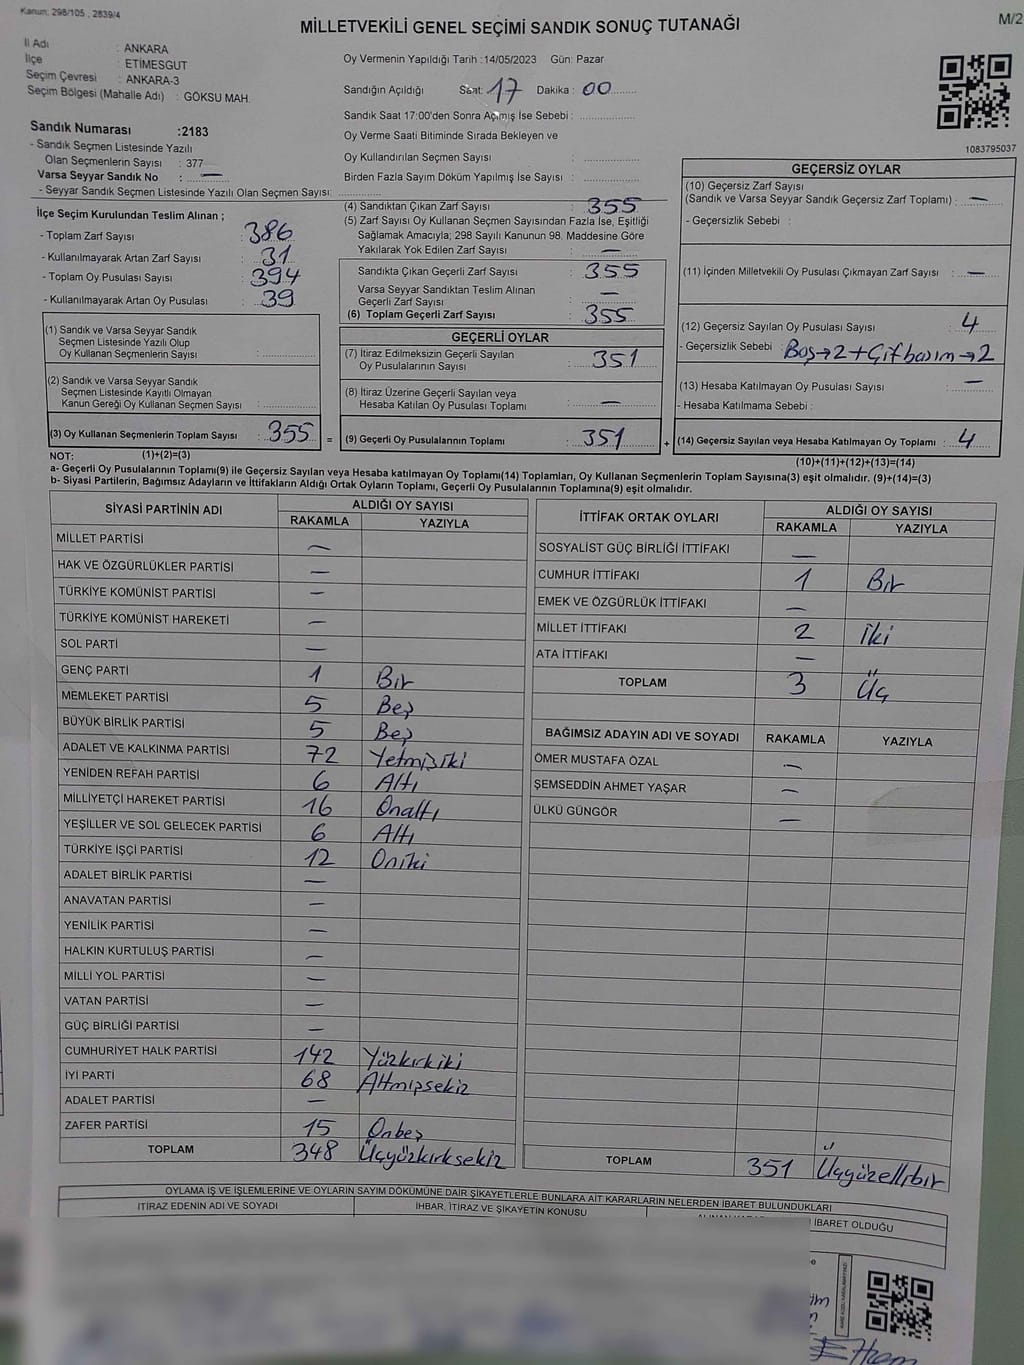 Kanun: 298/105 , 2839/4
MİLLETVEKİLİ GENEL SEÇİMİ SANDIK SONUÇ TUTANAĞI
M/2
İl Adı : ANKARA
İlçe : ETİMESGUT
Seçim Çevresi : ANKARA-3
Seçim Bölgesi (Mahalle Adı) : GÖKSU MAH.
Oy Vermenin Yapıldığı Tarih :14/05/2023 Gün: Pazar
Sandığın Açıldığı Saat: 17 Dakika : 00
Sandık Saat 17:00'den Sonra Açılmış İse Sebebi :
Oy Verme Saati Bitiminde Sırada Bekleyen ve
Oy Kullandırılan Seçmen Sayısı :
Birden Fazla Sayım Döküm Yapılmış İse Sayısı :
1083795037
Sandık Numarası :2183
- Sandık Seçmen Listesinde Yazılı
Olan Seçmenlerin Sayısı : 377
Varsa Seyyar Sandık No : —
- Seyyar Sandık Seçmen Listesinde Yazılı Olan Seçmen Sayısı:
İlçe Seçim Kurulundan Teslim Alınan ;
- Toplam Zarf Sayısı : 386
- Kullanılmayarak Artan Zarf Sayısı : 31
- Toplam Oy Pusulası Sayısı : 394
- Kullanılmayarak Artan Oy Pusulası : 39
(1) Sandık ve Varsa Seyyar Sandık
Seçmen Listesinde Yazılı Olup
Oy Kullanan Seçmenlerin Sayısı :
(2) Sandık ve Varsa Seyyar Sandık
Seçmen Listesinde Kayıtlı Olmayan
Kanun Gereği Oy Kullanan Seçmen Sayısı :
(3) Oy Kullanan Seçmenlerin Toplam Sayısı : 355 =
(4) Sandıktan Çıkan Zarf Sayısı : 355
(5) Zarf Sayısı Oy Kullanan Seçmen Sayısından Fazla İse, Eşitliği
Sağlamak Amacıyla; 298 Sayılı Kanunun 98. Maddesine Göre
Yakılarak Yok Edilen Zarf Sayısı : —
Sandıkta Çıkan Geçerli Zarf Sayısı : 355
Varsa Seyyar Sandıktan Teslim Alınan
Geçerli Zarf Sayısı : —
(6) Toplam Geçerli Zarf Sayısı : 355
GEÇERLİ OYLAR
(7) İtiraz Edilmeksizin Geçerli Sayılan
Oy Pusulalarının Sayısı : 351
(8) İtiraz Üzerine Geçerli Sayılan veya
Hesaba Katılan Oy Pusulası Toplamı : —
(9) Geçerli Oy Pusulalarının Toplamı : 351 +
GEÇERSİZ OYLAR
(10) Geçersiz Zarf Sayısı
(Sandık ve Varsa Seyyar Sandık Geçersiz Zarf Toplamı) : —
- Geçersizlik Sebebi :
(11) İçinden Milletvekili Oy Pusulası Çıkmayan Zarf Sayısı : —
(12) Geçersiz Sayılan Oy Pusulası Sayısı : 4
- Geçersizlik Sebebi : Boş→2+Çift basım→2
(13) Hesaba Katılmayan Oy Pusulası Sayısı : —
- Hesaba Katılmama Sebebi :
(14) Geçersiz Sayılan veya Hesaba Katılmayan Oy Toplamı : 4
NOT: (1)+(2)=(3)
(10)+(11)+(12)+(13)=(14)
a- Geçerli Oy Pusulalarının Toplamı(9) ile Geçersiz Sayılan veya Hesaba katılmayan Oy Toplamı(14) Toplamları, Oy Kullanan Seçmenlerin Toplam Sayısına(3) eşit olmalıdır. (9)+(14)=(3)
b- Siyasi Partilerin, Bağımsız Adayların ve İttifakların Aldığı Ortak Oyların Toplamı, Geçerli Oy Pusulalarının Toplamına(9) eşit olmalıdır.
SİYASİ PARTİNİN ADI ALDIĞI OY SAYISI
RAKAMLA YAZIYLA
MİLLET PARTİSİ —
HAK VE ÖZGÜRLÜKLER PARTİSİ —
TÜRKİYE KOMÜNİST PARTİSİ —
TÜRKİYE KOMÜNİST HAREKETİ —
SOL PARTİ —
GENÇ PARTİ 1 Bir
MEMLEKET PARTİSİ 5 Beş
BÜYÜK BİRLİK PARTİSİ 5 Beş
ADALET VE KALKINMA PARTİSİ 72 Yetmişiki
YENİDEN REFAH PARTİSİ 6 Altı
MİLLİYETÇİ HAREKET PARTİSİ 16 Onaltı
YEŞİLLER VE SOL GELECEK PARTİSİ 6 Altı
TÜRKİYE İŞÇİ PARTİSİ 12 Oniki
ADALET BİRLİK PARTİSİ —
ANAVATAN PARTİSİ —
YENİLİK PARTİSİ —
HALKIN KURTULUŞ PARTİSİ —
MİLLİ YOL PARTİSİ —
VATAN PARTİSİ —
GÜÇ BİRLİĞİ PARTİSİ —
CUMHURİYET HALK PARTİSİ 142 Yüzkırkiki
İYİ PARTİ 68 Altmışsekiz
ADALET PARTİSİ —
ZAFER PARTİSİ 15 Onbeş
TOPLAM 348 Üçyüzkırksekiz
İTTİFAK ORTAK OYLARI ALDIĞI OY SAYISI
RAKAMLA YAZIYLA
SOSYALİST GÜÇ BİRLİĞİ İTTİFAKI —
CUMHUR İTTİFAKI 1 Bir
EMEK VE ÖZGÜRLÜK İTTİFAKI —
MİLLET İTTİFAKI 2 İki
ATA İTTİFAKI —
TOPLAM 3 Üç
BAĞIMSIZ ADAYIN ADI VE SOYADI RAKAMLA YAZIYLA
ÖMER MUSTAFA ÖZAL —
ŞEMSEDDİN AHMET YAŞAR —
ÜLKÜ GÜNGÖR —
TOPLAM 351 Üçyüzellibir
OYLAMA İŞ VE İŞLEMLERİNE VE OYLARIN SAYIM DÖKÜMÜNE DAİR ŞİKAYETLERLE BUNLARA AİT KARARLARIN NELERDEN İBARET BULUNDUKLARI
İTİRAZ EDENİN ADI VE SOYADI İHBAR, İTİRAZ VE ŞİKAYETİN KONUSU
İBARET OLDUĞU